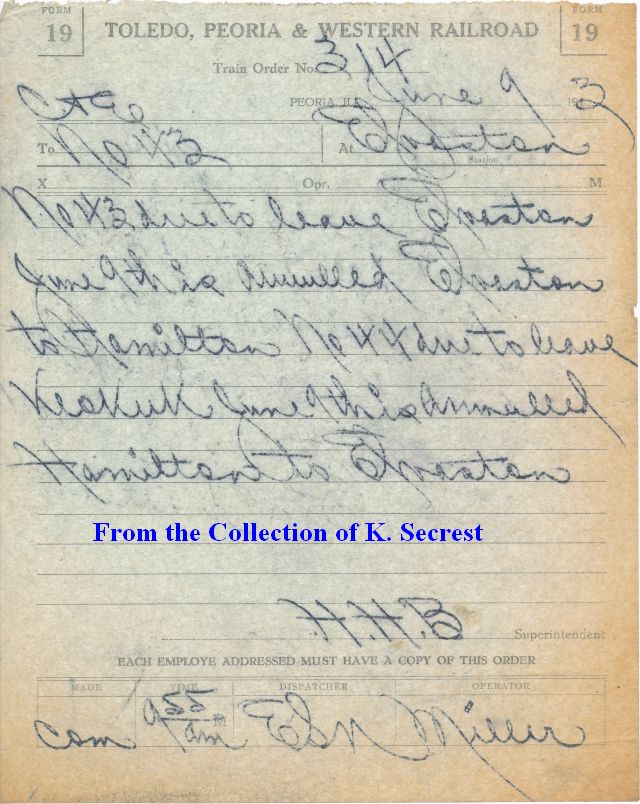 FORM 19 TOLEDO, PEORIA & WESTERN RAILROAD FORM 19
Train Order No. 314
PEORIA, ILL. June 9 191 3
C&E
To No 43 At Elvaston
Station
X Opr. M.
No 43 due to leave Elvaston
June 9th is Annulled Elvaston
to Hamilton No 44 due to leave
Keokuk June 9th is Annulled
Hamilton to Elvaston
From the Collection of K. Secrest
H.H.B. Superintendent
EACH EMPLOYE ADDRESSED MUST HAVE A COPY OF THIS ORDER
MADE TIME DISPATCHER OPERATOR
com 955 am M Miller